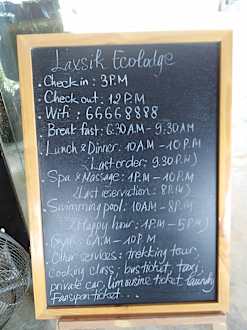 Laxsik Ecolodge
. Check in : 3P.M
. Check out : 12P.M
. Wifi : 66668888
. Break fast : 6:30A.M - 9:30AM
. Lunch & Dinner: 10A.M - 10P.M
(Last order: 9.30P.M)
. Spa & Massage: 1P.M - 10P.M
(Last reservation: 8P.M)
. Swimming pool: 10A.M - 8P.M
(Happy hour: 1P.M - 5P.M)
. Gym: 6A.M - 10P.M
. Other services: trekking tour,
cooking class, bus ticket, taxi,
private car, limousine ticket, laundry
Fansipan ticket...